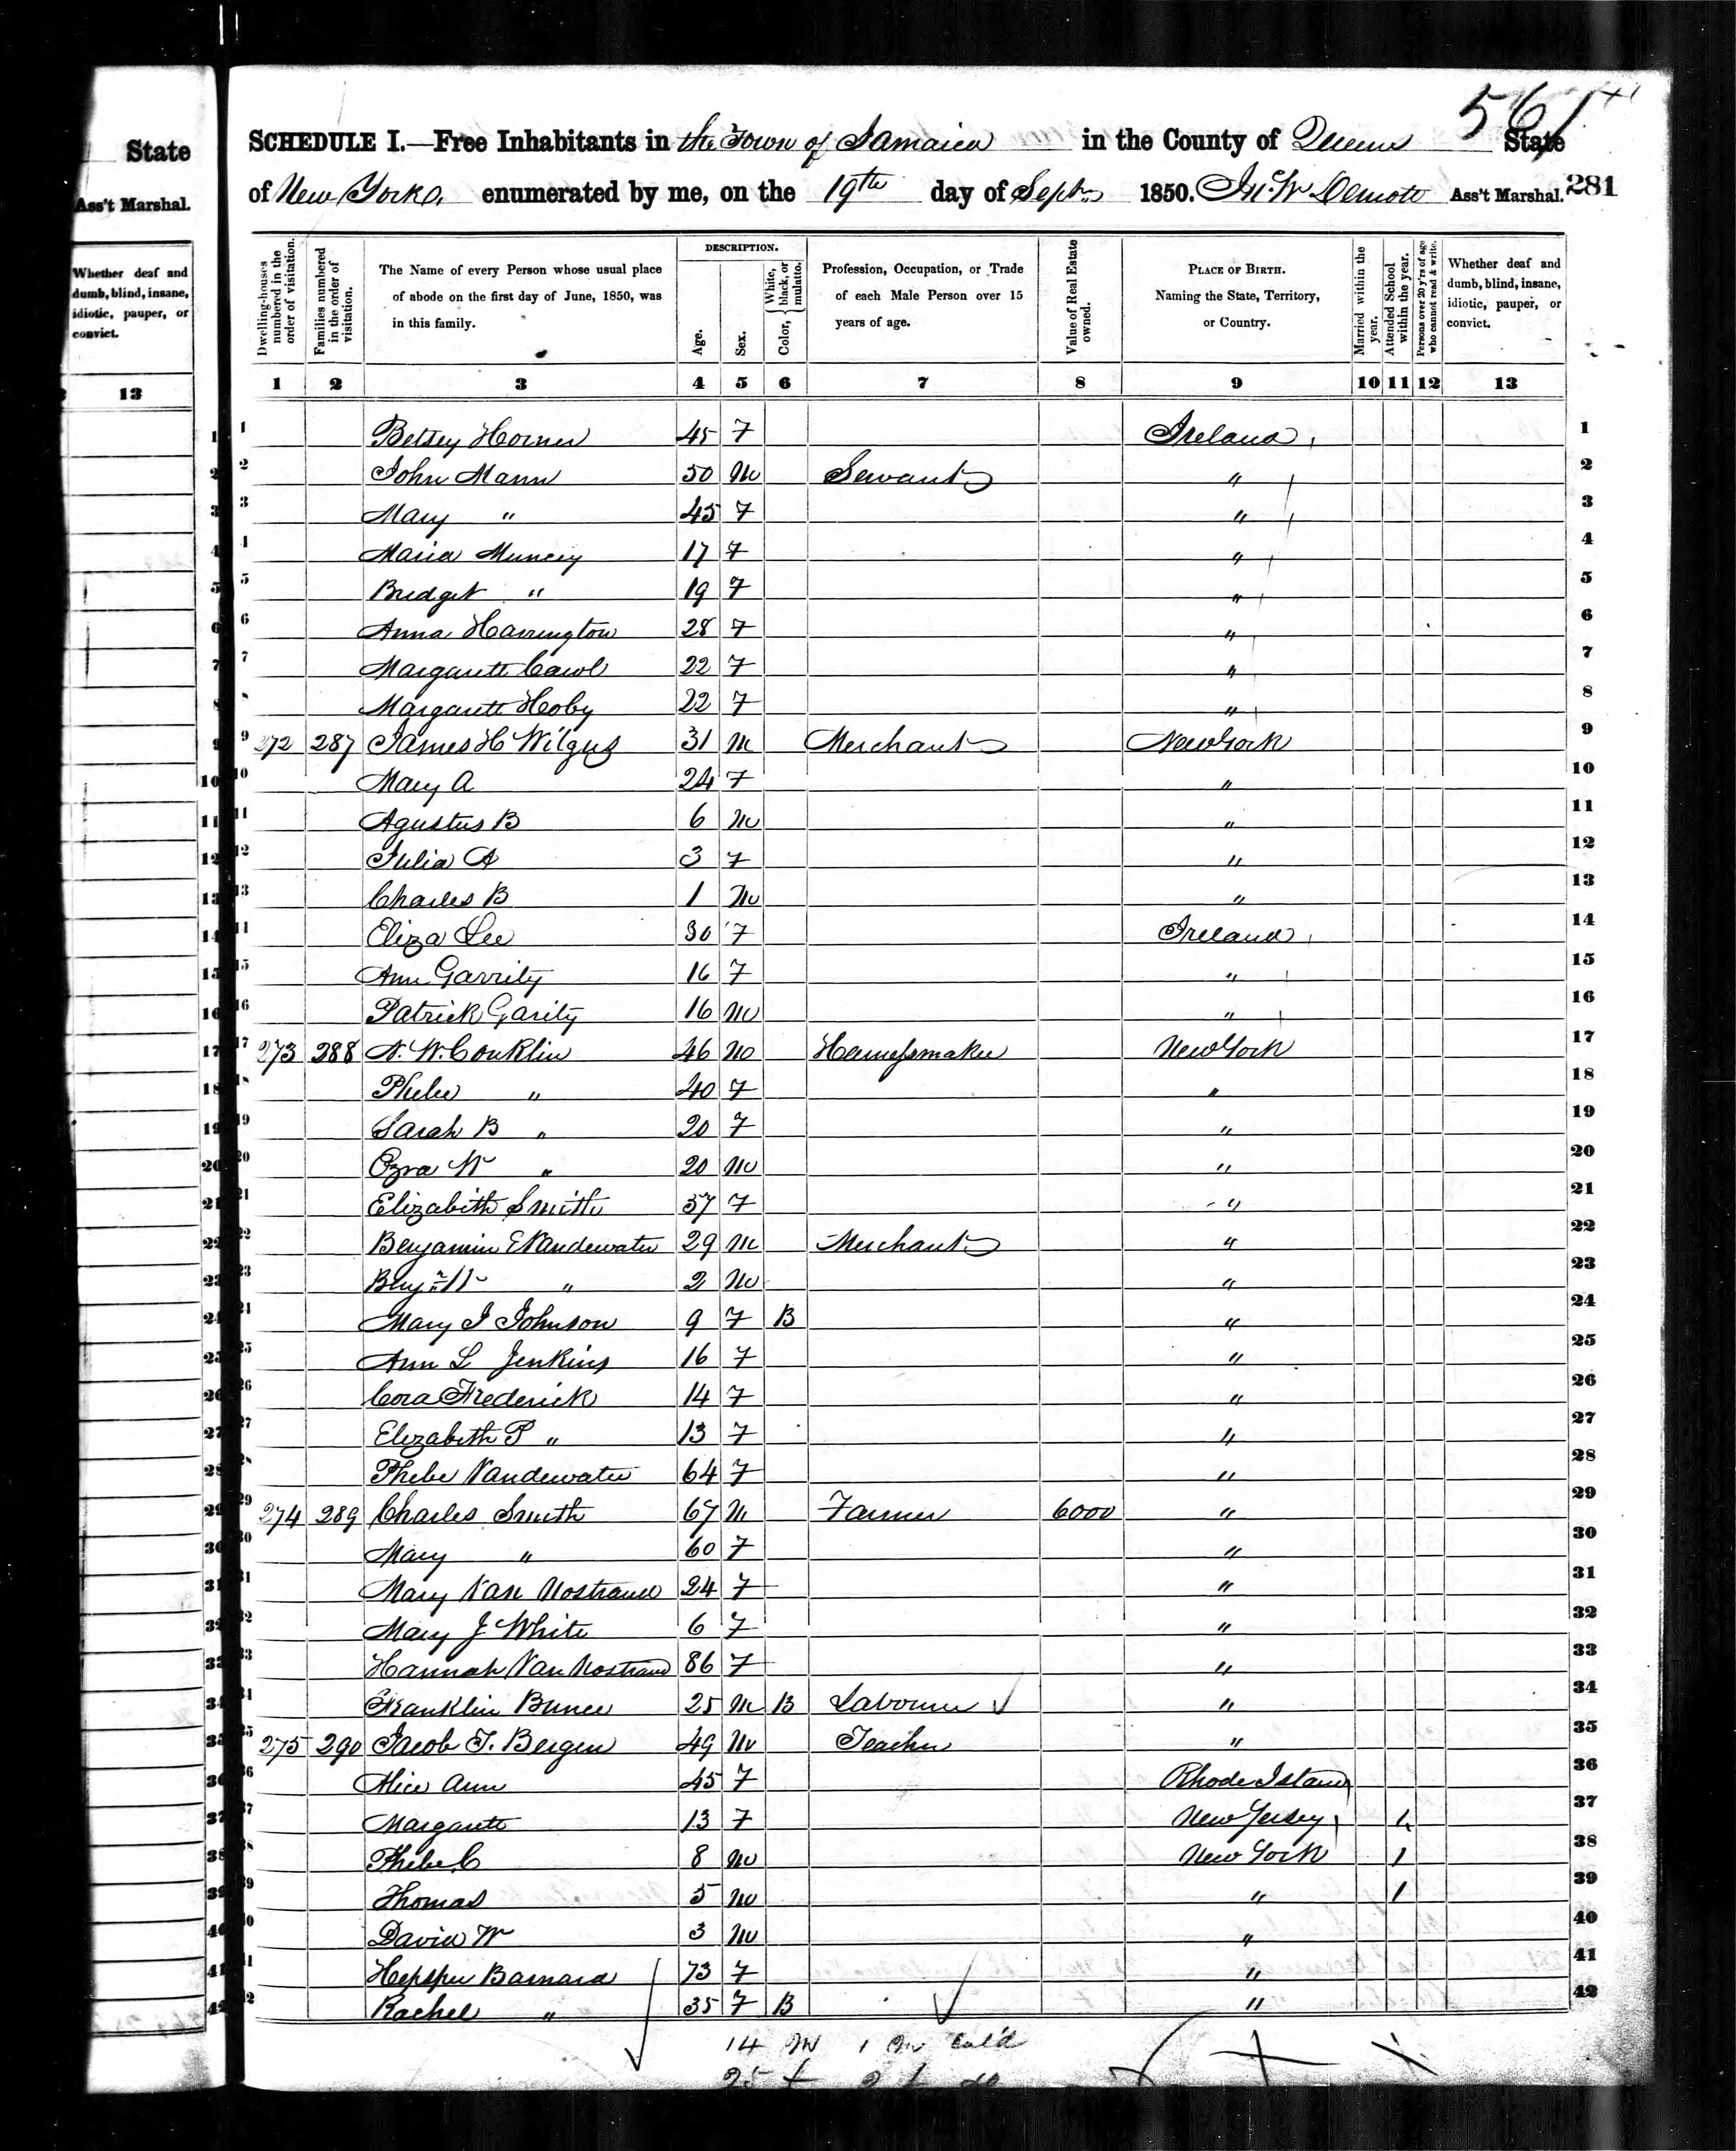 State
Ass't Marshal.
Whether deaf and
dumb, blind, insane,
idiotic, pauper, or
convict.
13
561
SCHEDULE I.—Free Inhabitants in the Town of Jamaica in the County of Queens State
of New York enumerated by me, on the 19th day of Sept 1850. Ass't Marshal. 281
Dwelling-houses numbered in the order of visitation.
Families numbered in the order of visitation.
The Name of every Person whose usual place of abode on the first day of June, 1850, was in this family.
DESCRIPTION.
Age.
Sex.
Color, { White, black, or mulatto.
Profession, Occupation, or Trade of each Male Person over 15 years of age.
Value of Real Estate owned.
PLACE OF BIRTH. Naming the State, Territory, or Country.
Married within the year.
Attended School within the year.
Persons over 20 y'rs of age who cannot read & write.
Whether deaf and dumb, blind, insane, idiotic, pauper, or convict.
1 2 3 4 5 6 7 8 9 10 11 12 13
1 Betsey Horner 45 F Ireland 1
2 John Mann 50 M Servant " 2
3 Mary " 45 F " 3
4 Maria Muncey 17 F " 4
5 Bridget " 19 F " 5
6 Anna Harrington 28 F " 6
7 Margarett Carol 22 F " 7
8 Margarett Hoby 22 F " 8
9 272 287 James H Wilgus 31 M Merchant New York 9
10 Mary A 24 F " 10
11 Agustus B 6 M " 11
12 Julia A 3 F " 12
13 Charles B 1 M " 13
14 Eliza Lee 30 F Ireland 14
15 Ann Garrity 16 F " 15
16 Patrick Garity 16 M " 16
17 273 288 A. W. Conklin 46 M Harnessmaker New York 17
18 Phebe " 40 F " 18
19 Sarah B " 20 F " 19
20 Ezra W " 20 M " 20
21 Elizabeth Smith 37 F " 21
22 Benjamin E Vandewater 29 M Merchant " 22
23 Benj " 2 M " 23
24 Mary J Johnson 9 F B " 24
25 Ann L Jenkins 16 F " 25
26 Cora Frederick 14 F " 26
27 Elizabeth P " 13 F " 27
28 Phebe Vandewater 64 F " 28
29 274 289 Charles Smith 67 M Farmer 6000 " 29
30 Mary " 60 F " 30
31 Mary Van Nostrand 24 F " 31
32 Mary J White 6 F " 32
33 Hannah Van Nostrand 86 F " 33
34 Franklin Bunce 25 M B Labourer " 34
35 275 290 Jacob T. Bergen 49 M Teacher " 35
36 Alice Ann 45 F Rhode Island 36
37 Margarett 13 F New Jersey 1 37
38 Phebe C 8 M New York 1 38
39 Thomas 5 M " 1 39
40 David W 3 M " 40
41 Barnard 73 F " 41
42 Rachel " 35 F B " 42
14 M 1 M Col'd
25 f 2 f do